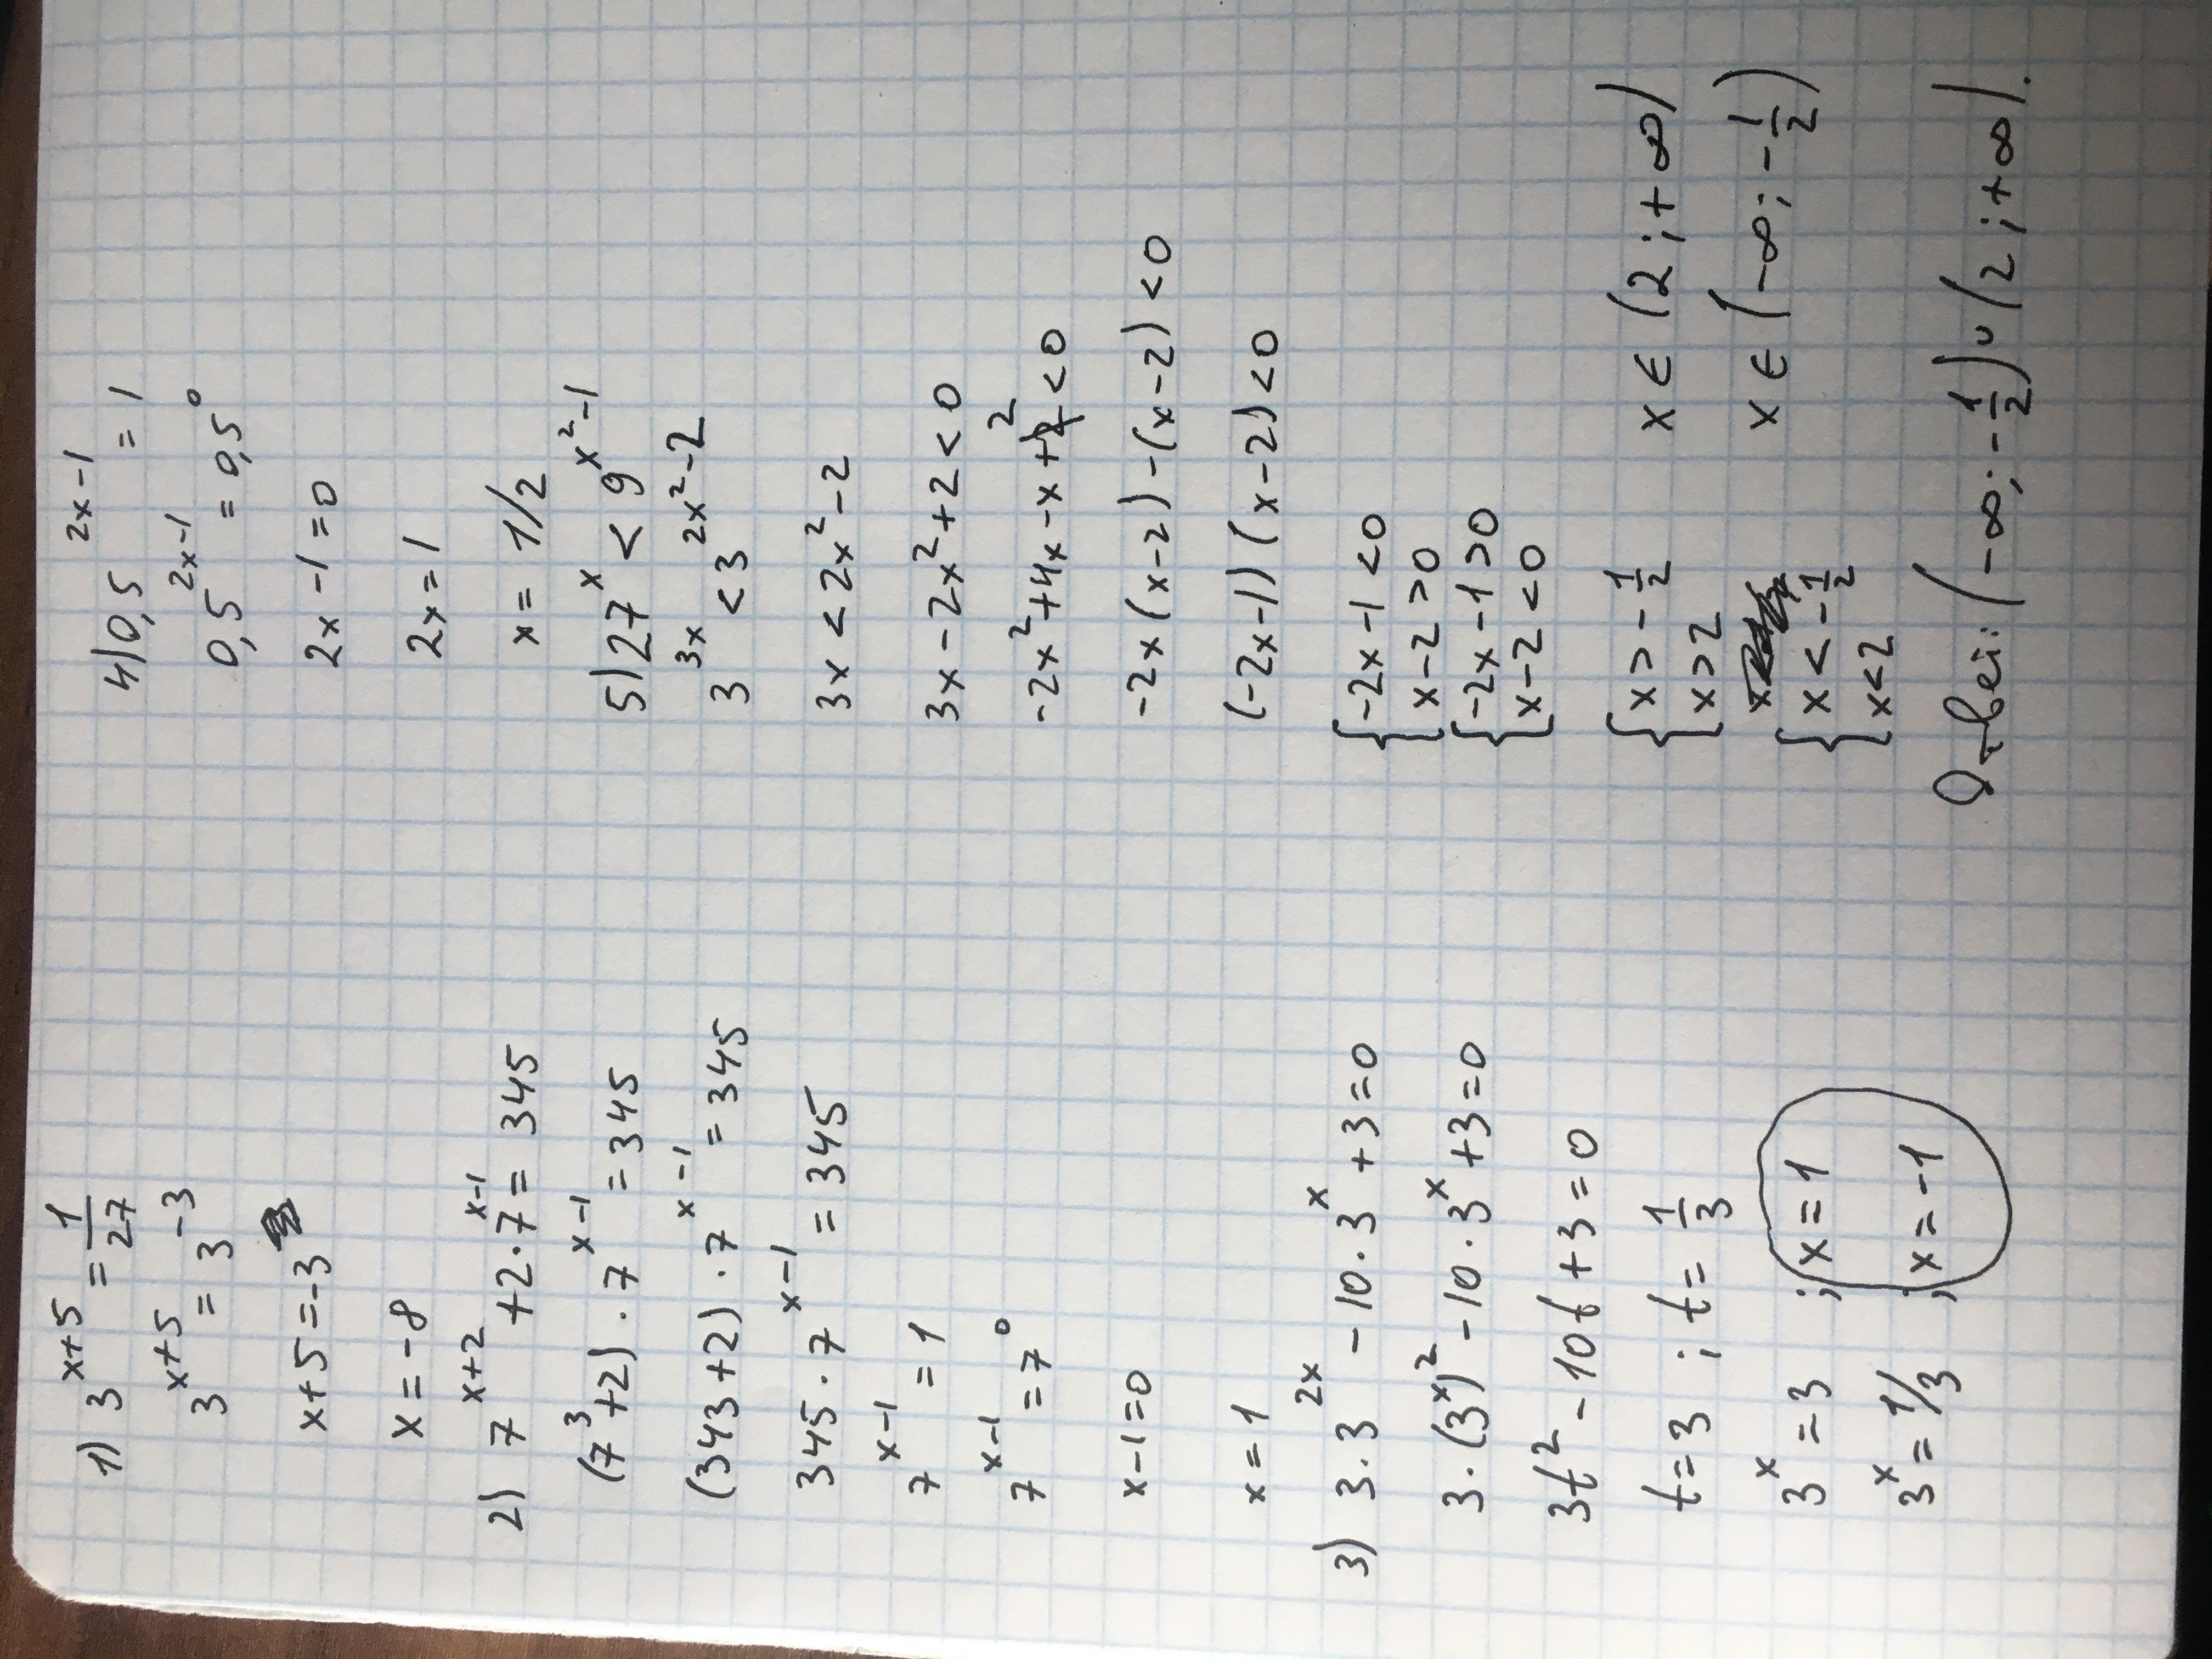 1) 3^(x+5) = 1/27
3^(x+5) = 3^(-3)
x+5=-3
x=-8
2) 7^(x+2) +2·7^(x-1) = 345
(7³+2)·7^(x-1) = 345
(343+2)·7^(x-1) = 345
345·7^(x-1) = 345
7^(x-1) = 1
7^(x-1) = 7⁰
x-1=0
x=1
3) 3·3^(2x) -10·3^x +3=0
3·(3^x)² -10·3^x +3=0
3t² -10t +3=0
t=3 ; t= 1/3
3^x =3 ; x=1
3^x =1/3 ; x=-1
4) 0,5^(2x-1) = 1
0,5^(2x-1) = 0,5⁰
2x-1=0
2x=1
x=1/2
5) 27^x < 9^(x²-1)
3^(3x) < 3^(2x²-2)
3x < 2x²-2
3x-2x²+2<0
-2x²+4x-x+2<0
-2x(x-2)-(x-2)<0
(-2x-1)(x-2)<0
{-2x-1<0
x-2>0
{-2x-1>0
x-2<0
{x>-1/2
x>2 x∈(2;+∞)
{x<-1/2
x<2 x∈(-∞;-1/2)
Ответ: (-∞;-1/2)∪(2;+∞).